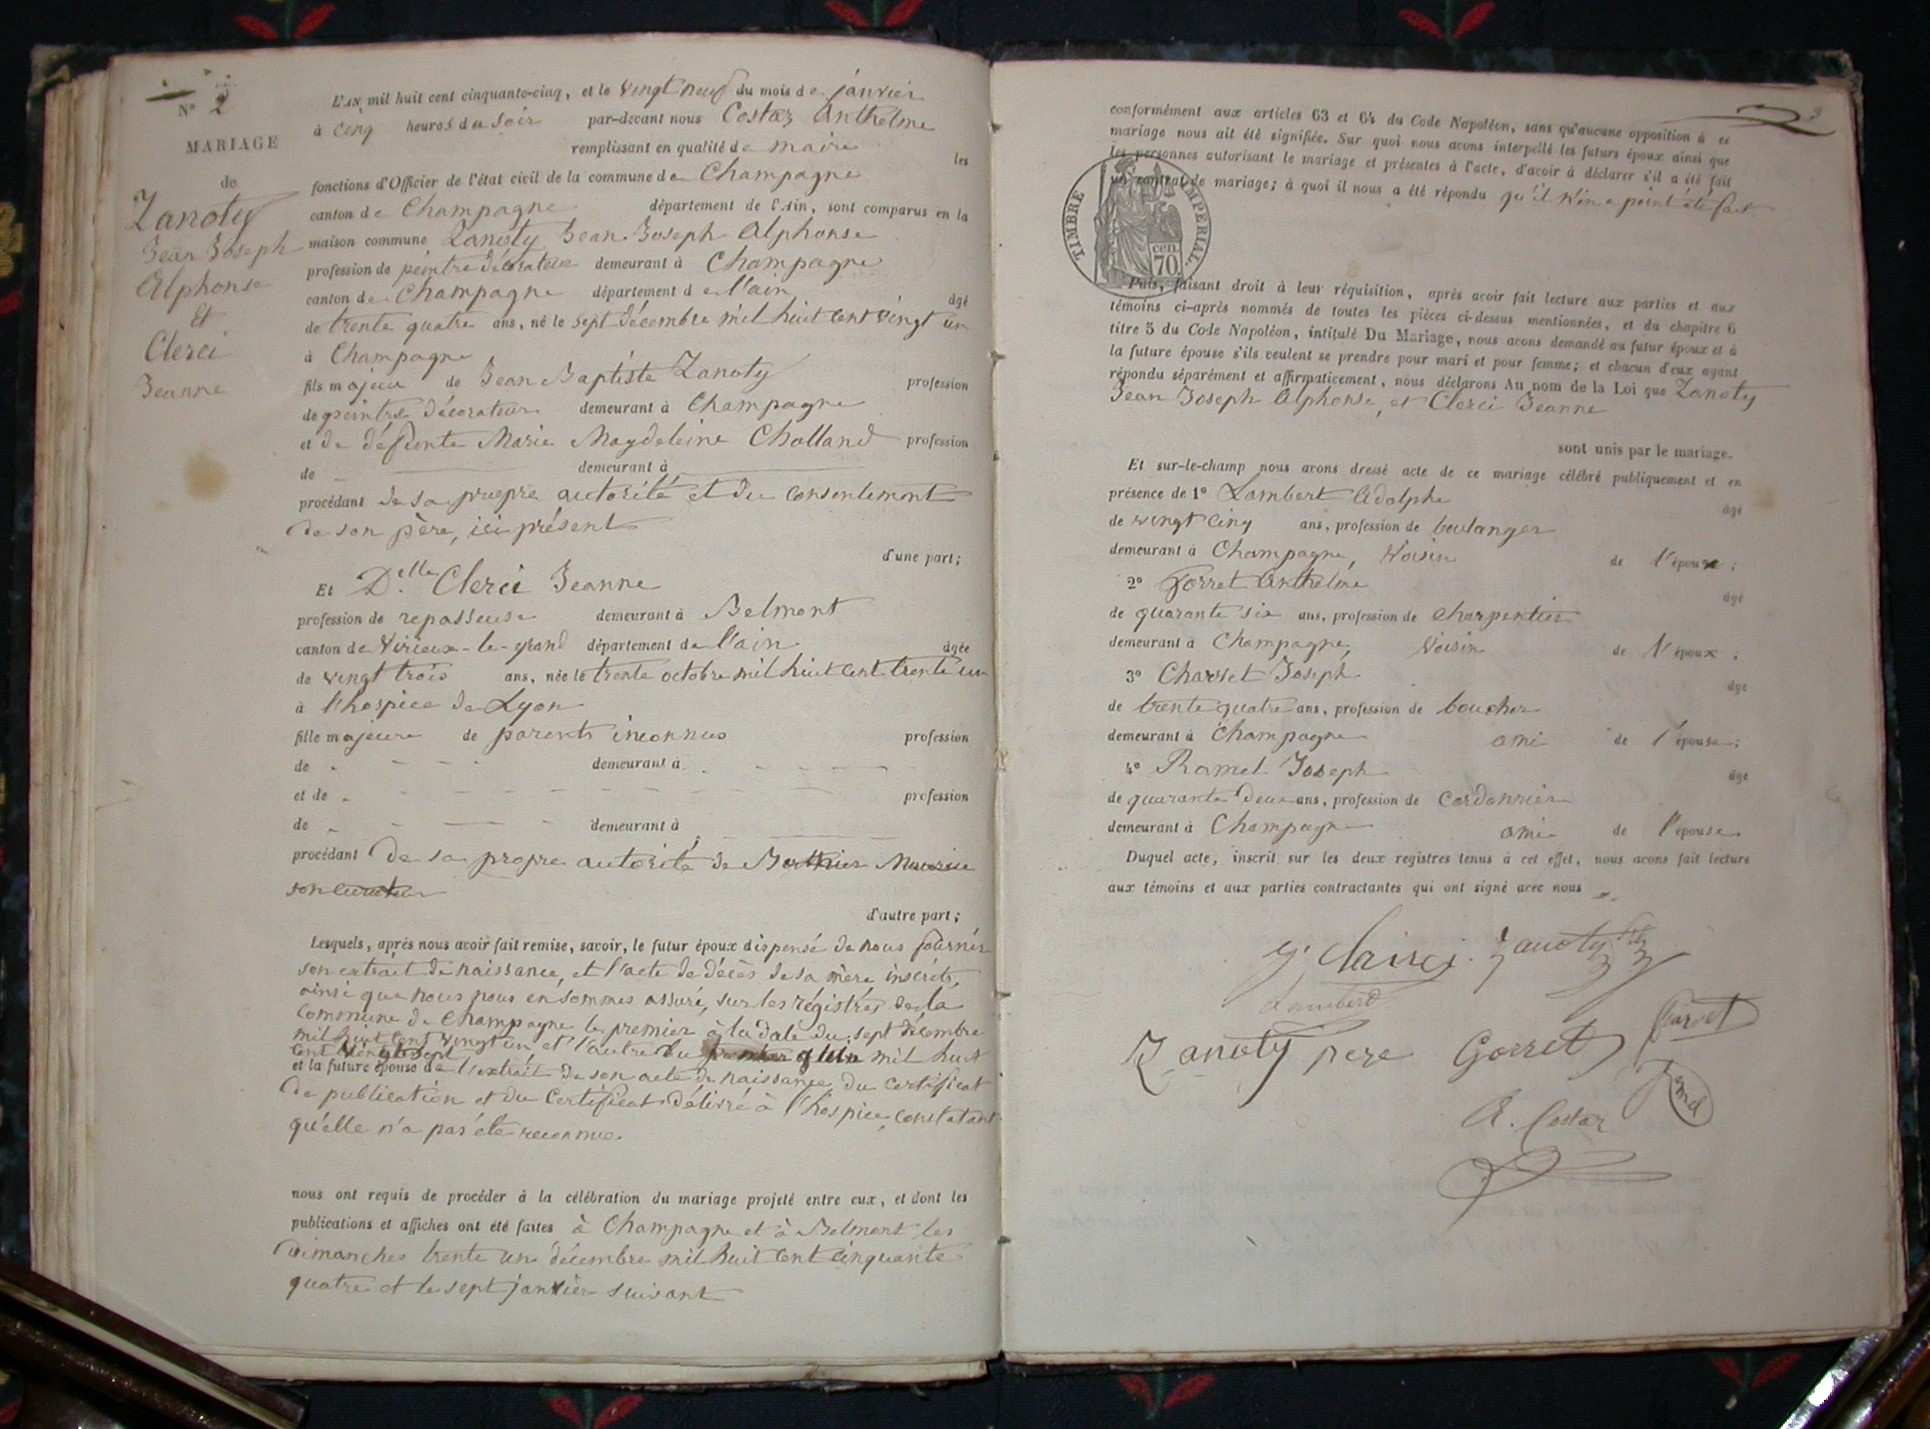 N° 2
MARIAGE
de
Zanoty
Jean Joseph
Alphonse
et
Clerci
Jeanne
L'AN mil huit cent cinquante-cinq, et le vingt neuf du mois de janvier
à cinq heures du soir par-devant nous Costaz Anthelme
remplissant en qualité de maire les
fonctions d'Officier de l'état civil de la commune de Champagne
canton de Champagne département de l'Ain, sont comparus en la
maison commune Zanoty Jean Joseph Alphonse
profession de peintre décorateur demeurant à Champagne
canton de Champagne département de l'ain âgé
de trente quatre ans, né le sept décembre mil huit cent vingt un
à Champagne
fils majeur de Jean Baptiste Zanoty profession
de peintre décorateur demeurant à Champagne
et de défunte Marie Magdeleine Cholland profession
de demeurant à
procédant de sa propre autorité et du consentement
de son père, ici présent
d'une part;
Et Delle Clerci Jeanne
profession de repasseuse demeurant à Belmont
canton de Virieux-le-grand département de l'ain âgée
de vingt trois ans, née le trente octobre mil huit cent trente un
à l'hospice de Lyon
fille majeure de parents inconnus profession
de demeurant à
et de profession
de demeurant à
procédant de sa propre autorité de Berthier
son curateur
d'autre part;
Lesquels, après nous avoir fait remise, savoir, le futur époux dispensé de nous fournir
son extrait de naissance, et l'acte de décès de sa mère inscrits,
ainsi que nous nous en sommes assuré, sur les régistres de la
commune de Champagne le premier à la date du sept décembre
mil huit cent vingt un et l'autre du mil huit
cent
et la future épouse de l'extrait de son acte de naissance du certificat
de publication et du certificat délivré à l'hospice, constatant
qu'elle n'a pas été reconnue.
nous ont requis de procéder à la célébration du mariage projeté entre eux, et dont les
publications et affiches ont été faites à Champagne et à Belmont les
dimanches trente un décembre mil huit cent cinquante
quatre et le sept janvier suivant
conformément aux articles 63 et 64 du Code Napoléon, sans qu'aucune opposition à ce
mariage nous ait été signifiée. Sur quoi nous avons interpellé les futurs époux ainsi que
les personnes autorisant le mariage et présentes à l'acte, d'avoir à déclarer s'il a été fait
un contrat de mariage; à quoi il nous a été répondu qu'il n'en a point été fait
TIMBRE IMPERIAL.
cen.
70
Puis, faisant droit à leur réquisition, après avoir fait lecture aux parties et aux
témoins ci-après nommés de toutes les pièces ci-dessus mentionnées, et du chapitre 6
titre 5 du Code Napoléon, intitulé Du Mariage, nous avons demandé au futur époux et à
la future épouse s'ils veulent se prendre pour mari et pour femme; et chacun d'eux ayant
répondu séparément et affirmativement, nous déclarons Au nom de la Loi que Zanoty
Jean Joseph Alphonse, et Clerci Jeanne
sont unis par le mariage.
Et sur-le-champ nous avons dressé acte de ce mariage célébré publiquement et en
présence de 1° Lambert Adolphe âgé
de vingt cinq ans, profession de boulanger
demeurant à Champagne, voisin de l'époux;
2° Gorret Anthelme âgé
de quarante six ans, profession de charpentier
demeurant à Champagne, voisin de l'époux;
3° Charvet Joseph âgé
de trente quatre ans, profession de boucher
demeurant à Champagne ami de l'épouse;
4° Ramel Joseph âgé
de quarante deux ans, profession de cordonnier
demeurant à Champagne ami de l'épouse.
Duquel acte, inscrit sur les deux registres tenus à cet effet, nous avons fait lecture
aux témoins et aux parties contractantes qui ont signé avec nous
Zanoty fils
Lambert
Zanoty pere Gorret
A. Costaz